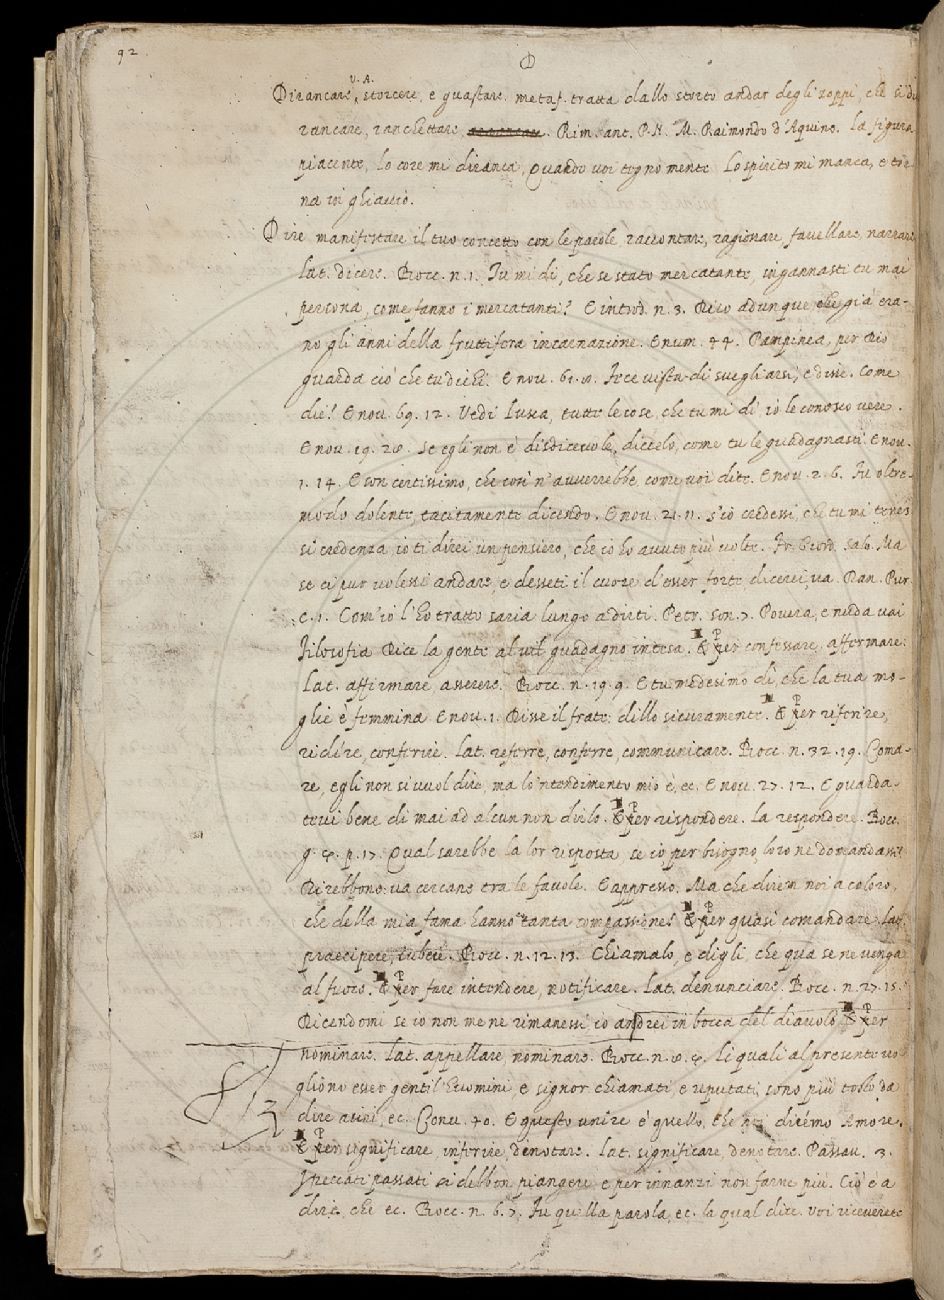 92
D
V. A.
Dirancare, storcere, e guastare. metaf. tratta dallo storto andar degli zoppi, che si di
rancare, ranchettare, Rim. ant. P. N. M. Raimondo d'Aquino. la figura
piacente, lo core mi diranca, Quando voi tegno mente. Lo spirito mi manca, e tor-
na in ghiaccio.
Dire manifestare il suo concetto con le parole, raccontare, ragionare, favellare, narrare
Lat. dicere. Bocc. n. 1. Tu mi di, che se stato mercatante, ingannasti tu mai
persona, come fanno i mercatanti? E introd. n. 3. Dico adunque che già era-
no gli anni della fruttifera incarnazione. E num. 44. Pampinea, per Dio
guarda ciò che tu dichi. E nov. 61. 8. Fece vista di svegliarsi, e disse. Come
die? E nov. 69. 12. Vedi Lusca, tutte le cose, che tu mi di, io le conosco vere.
E nov. 19. 28. Se egli non è disdicevole, diccelo, come tu le guadagnasti. E nov.
1. 14. E son certissimo, che così n'avverrebbe, come voi dite. E nov. 2. 6. Fu oltre-
modo dolente, tacitamente dicendo. E nov. 21. 11. S'io credessi, che tu mi tenes
si credenza, io ti direi un pensiero, che io ho avuto più volte. Fr. Giord. salv. Ma
se ei pur volessi andare, e desseti il cuore d'esser forte, dicerei, va. Dan. Pur.
c. 1. Com'io l'ho tratto saria lungo a dirti. Petr. son. 7. Povera, e nuda vai
Filosofia Dice la gente al vil guadagno intesa. & Per confessare, affermare.
Lat. affirmare asserere. Bocc. n. 19. 9. E tu medesimo di, che la tua mo-
glie è femmina E nov. 1. Disse il frate: dillo sicuramente. & Per riferire,
ridire, conferire. Lat. referre, conferre, communicare. Bocc. n. 32. 19. Coma-
re, egli non si vuol dire, ma lo'ntendimento mio è, ec. E nov. 27. 12. E guarda-
tevi bene di mai ad alcun non dirlo. & Per rispondere. La respondere. Bocc.
g. 4. p. 17. Qual sarebbe la lor risposta, se io per bisogno loro ne domandassi?
Direbbono: va cercane tra le favole. E appresso. Ma che direm noi a coloro,
che della mia fama hanno tanta compassione? & Per quasi comandare. Lat.
praecipere, iubere. Bocc. n. 12. 13. Chiamalo, e digli, che qua se ne venga
al fuoco. & Per fare intendere, notificare. Lat. denunciare. Bocc. n. 27. 15.
Dicendomi se io non me ne rimanessi, io andrei in bocca del diavolo. & Per
nominare. Lat. appellare, nominare. Bocc. n. 8. 4. Li quali al presente vo-
gliono esser gentil'huomini, e signor chiamati, e reputati, sono più tosto da
dire asini, ec. Conv. 40. E questo unire è quello, che noi dicémo Amore.
& Per significare, inferire, denotare. Lat. significare, denotare. Passav. 3.
I peccati passati si debbon piangere e per innanzi non farne più. Ciò è a
dire, che ec. Bocc. n. 6. 7. Fu quella parola, ec. la qual dice. Voi riceverete